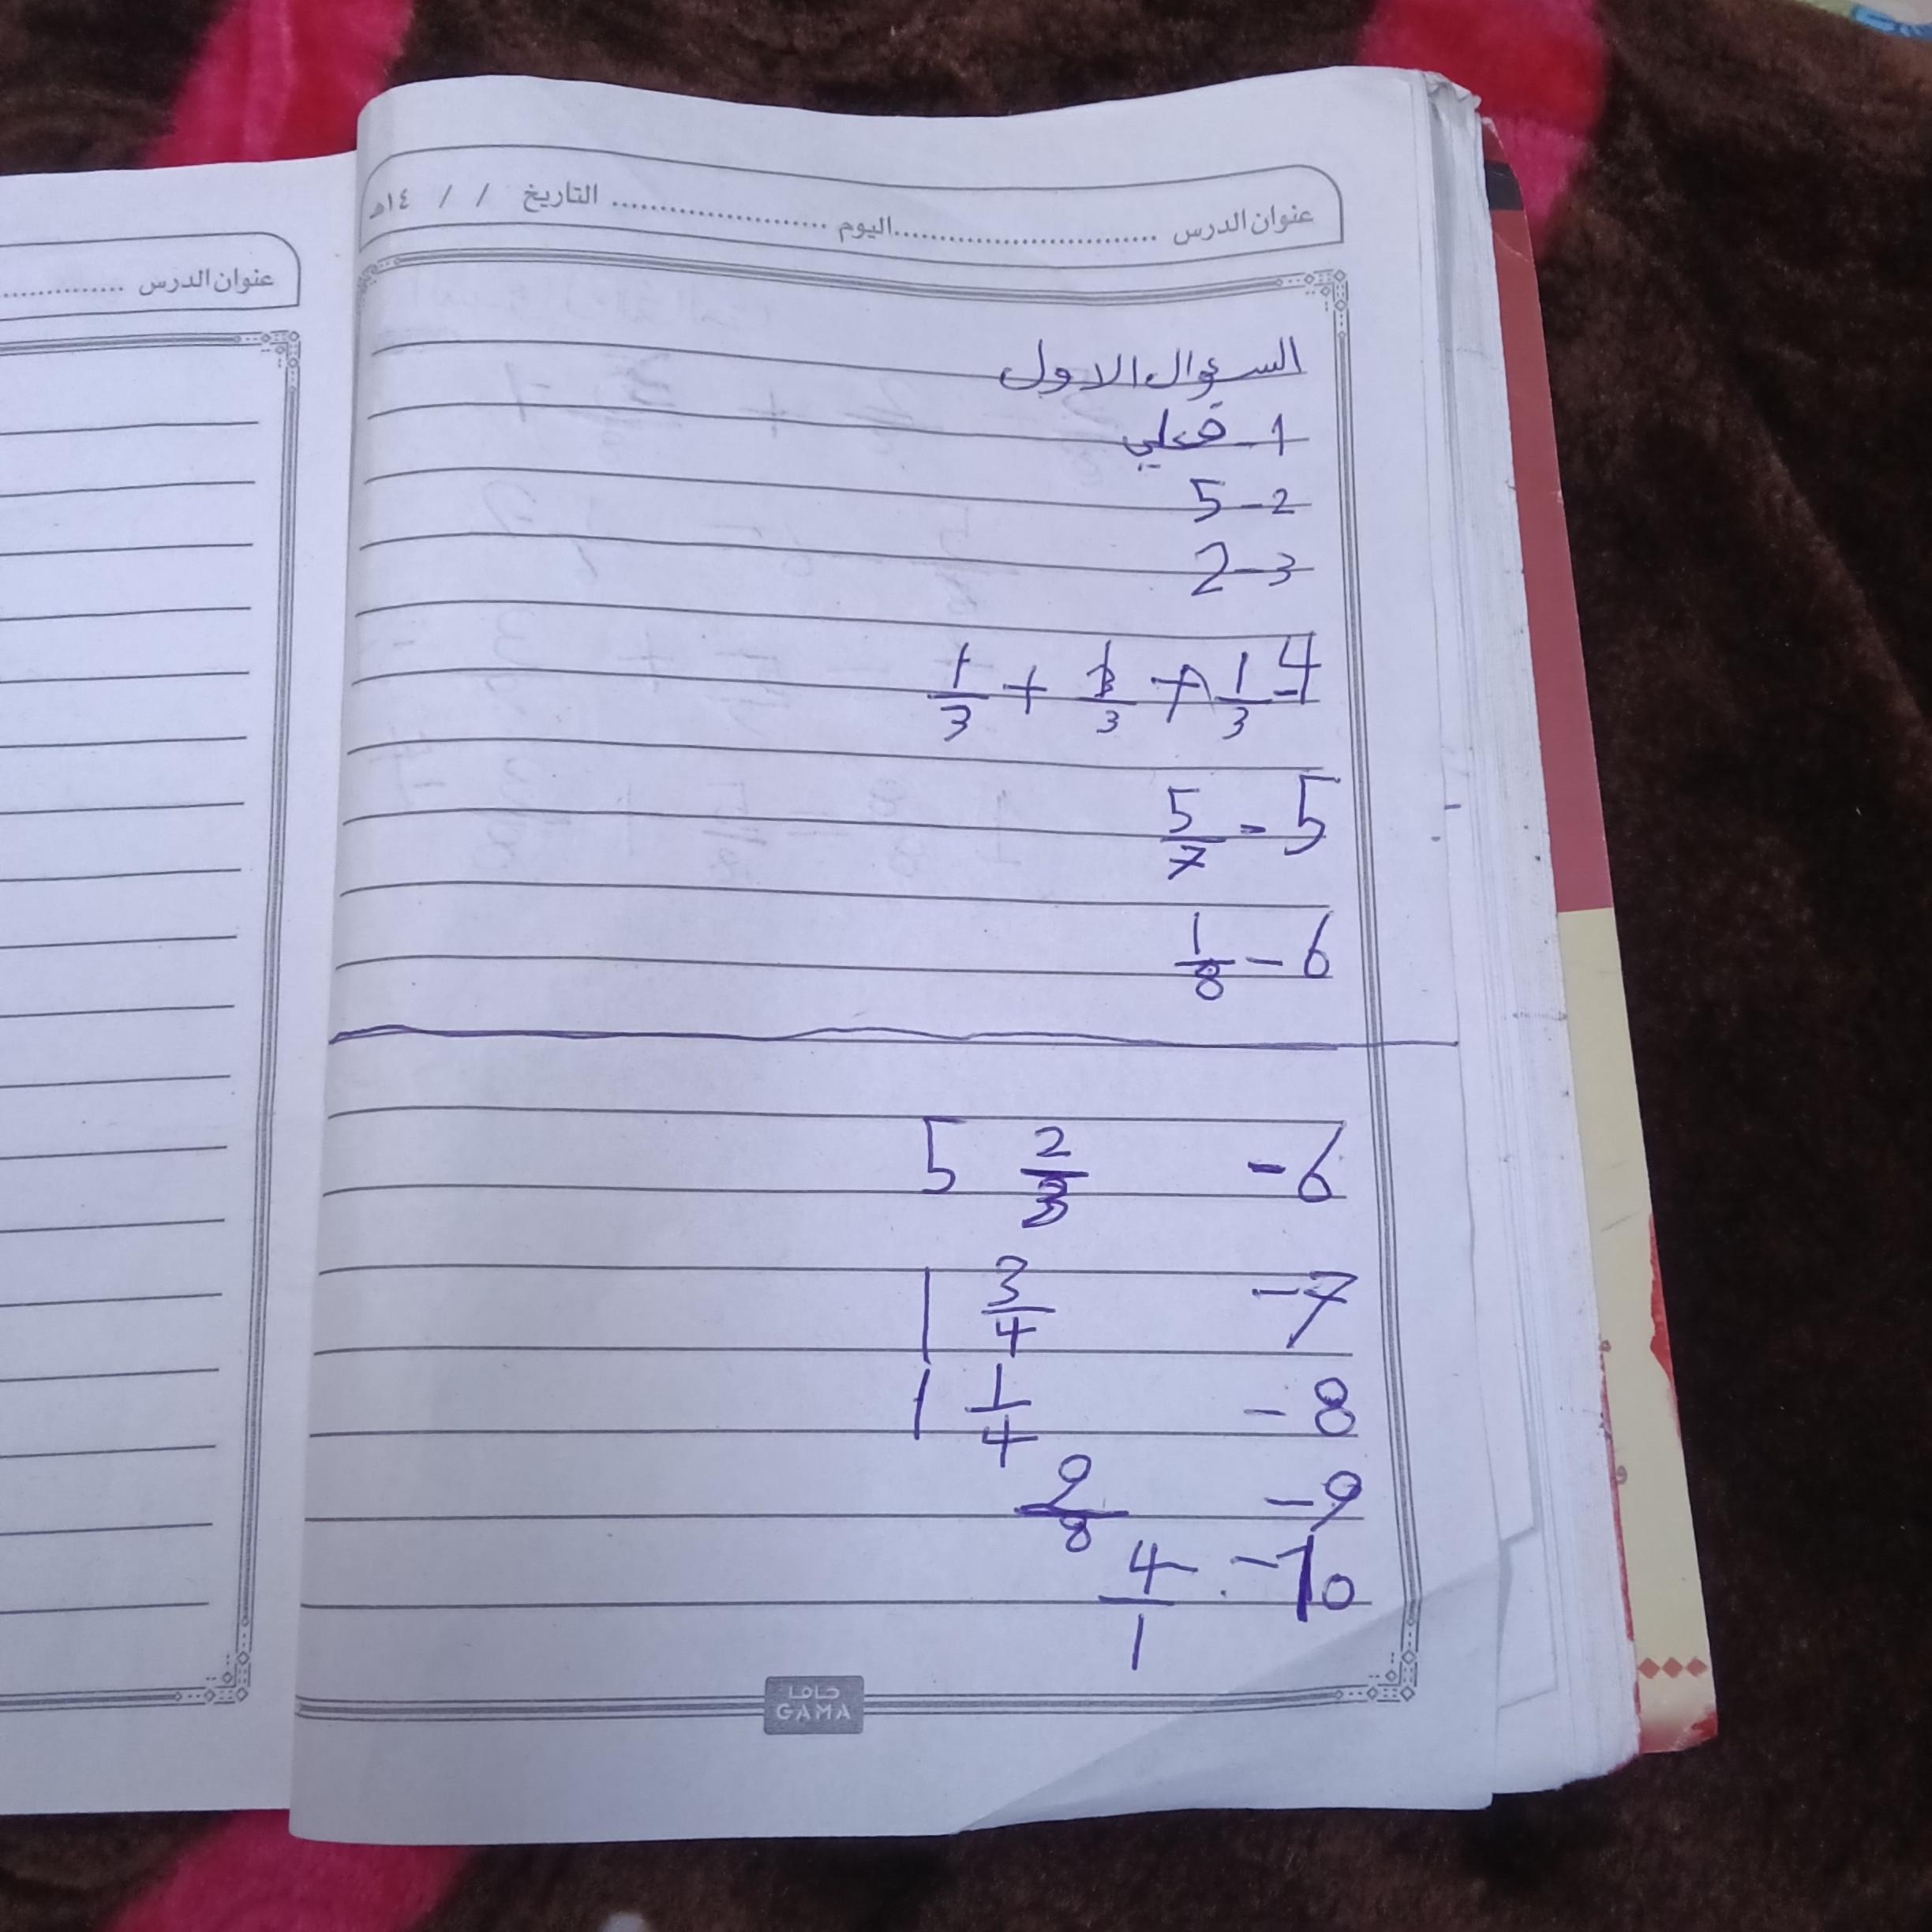 عنوان الدرس ............................ اليوم ...................... التاريخ / / ١٤هـ
عنوان الدرس ..............
السؤال الاول
1- فعلي
2- 5
3- 2
4- 1/3 + 1/3 + 1/3
5- 5/7
6- 1/8
6- 5 2/3
7- 1 3/4
8- 1 1/4
9- 9/8
10- 4/1
جاما
GAMA